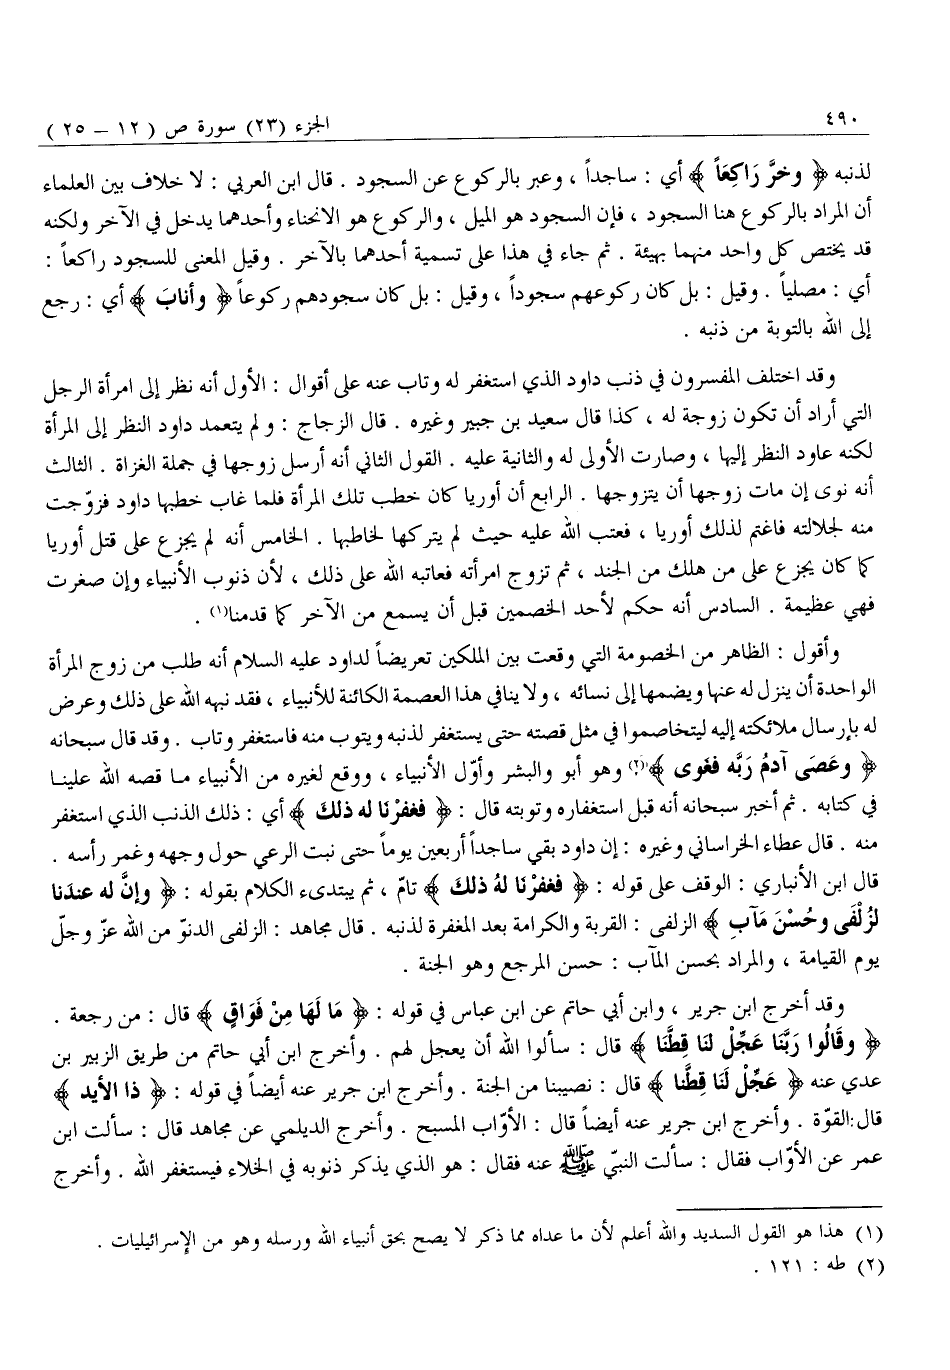 ٤٩٠
الجزء (٢٣) سورة ص ( ١٢ – ٢٥ )
لذنبه ﴿ وخرَّ رَاكِعَاً ﴾ أي : ساجداً ، وعبر بالركوع عن السجود . قال ابن العربي : لا خلاف بين العلماء
أن المراد بالركوع هنا السجود ، فإن السجود هو الميل ، والركوع هو الانحناء وأحدهما يدخل في الآخر ولكنه
قد يختص كل واحد منهما بهيئة . ثم جاء في هذا على تسمية أحدهما بالآخر . وقيل المعنى للسجود راكعاً :
أي : مصلياً . وقيل : بل كان ركوعهم سجوداً ، وقيل : بل كان سجودهم ركوعاً ﴿ وأنابَ ﴾ أي : رجع
إلى الله بالتوبة من ذنبه .
وقد اختلف المفسرون في ذنب داود الذي استغفر له وتاب عنه على أقوال : الأول أنه نظر إلى امرأة الرجل
التي أراد أن تكون زوجة له ، كذا قال سعيد بن جبير وغيره . قال الزجاج : ولم يتعمد داود النظر إلى المرأة
لكنه عاود النظر إليها ، وصارت الأولى له والثانية عليه . القول الثاني أنه أرسل زوجها في جملة الغزاة . الثالث
أنه نوى إن مات زوجها أن يتزوجها . الرابع أن أوريا كان خطب تلك المرأة فلما غاب خطبها داود فزوّجت
منه لجلالته فاغتم لذلك أوريا ، فعتب الله عليه حيث لم يتركها لخاطبها . الخامس أنه لم يجزع على قتل أوريا
كما كان يجزع على من هلك من الجند ، ثم تزوج امرأته فعاتبه الله على ذلك ، لأن ذنوب الأنبياء وإن صغرت
فهي عظيمة . السادس أنه حكم لأحد الخصمين قبل أن يسمع من الآخر كما قدمنا(١) .
وأقول : الظاهر من الخصومة التي وقعت بين الملكين تعريضاً لداود عليه السلام أنه طلب من زوج المرأة
الواحدة أن ينزل له عنها ويضمها إلى نسائه ، ولا ينافي هذا العصمة الكائنة للأنبياء ، فقد نبهه الله على ذلك وعرض
له بإرسال ملائكته إليه ليتخاصموا في مثل قصته حتى يستغفر لذنبه ويتوب منه فاستغفر وتاب . وقد قال سبحانه
﴿ وعصَى آدمُ رَبَّه فغَوى ﴾(٢) وهو أبو والبشر وأوّل الأنبياء ، ووقع لغيره من الأنبياء ما قصه الله علينا
في كتابه . ثم أخبر سبحانه أنه قبل استغفاره وتوبته قال : ﴿ فغفرْنَا له ذلكَ ﴾ أي : ذلك الذنب الذي استغفر
منه . قال عطاء الخراساني وغيره : إن داود بقي ساجداً أربعين يوماً حتى نبت الرعي حول وجهه وغمر رأسه .
قال ابن الأنباري : الوقف على قوله : ﴿ فغفرْنَا لهُ ذلكَ ﴾ تامّ ، ثم يبتدىء الكلام بقوله : ﴿ وإنَّ له عندَنا
لزُلْفَى وحُسْنَ مَآبٍ ﴾ الزلفى : القربة والكرامة بعد المغفرة لذنبه . قال مجاهد : الزلفى الدنوّ من الله عزّ وجلّ
يوم القيامة ، والمراد بحسن المآب : حسن المرجع وهو الجنة .
وقد أخرج ابن جرير ، وابن أبي حاتم عن ابن عباس في قوله : ﴿ مَا لَهَا مِنْ فَوَاقٍ ﴾ قال : من رجعة .
﴿ وقَالُوا رَبَّنَا عَجِّلْ لَنَا قِطَّنَا ﴾ قال : سألوا الله أن يعجل لهم . وأخرج ابن أبي حاتم من طريق الزبير بن
عدي عنه ﴿ عَجِّلْ لَنَا قِطَّنا ﴾ قال : نصيبنا من الجنة . وأخرج ابن جرير عنه أيضاً في قوله : ﴿ ذا الأيد ﴾
قال:القوّة . وأخرج ابن جرير عنه أيضاً قال : الأوّاب المسبح . وأخرج الديلمي عن مجاهد قال : سألت ابن
عمر عن الأوّاب فقال : سألت النبيّ ﷺ عنه فقال : هو الذي يذكر ذنوبه في الخلاء فيستغفر الله . وأخرج
(١) هذا هو القول السديد والله أعلم لأن ما عداه مما ذكر لا يصح بحق أنبياء الله ورسله وهو من الإسرائيليات .
(٢) طه : ١٢١ .